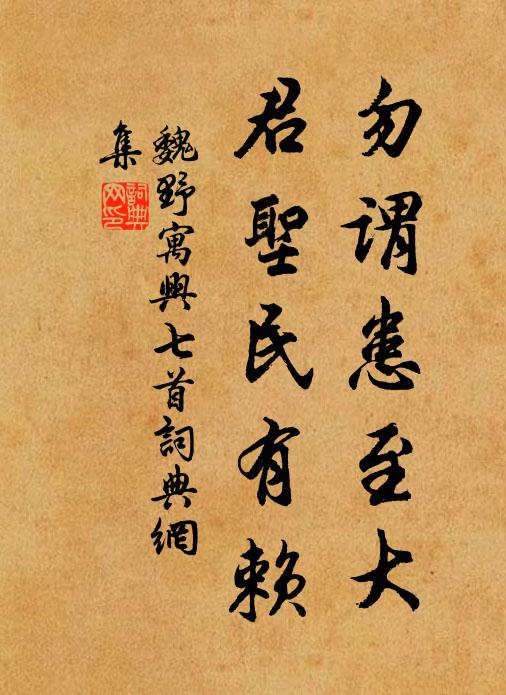 勿謂患至大
君聖民有賴
魏野寓興七首詞典網
集
詞典
网印